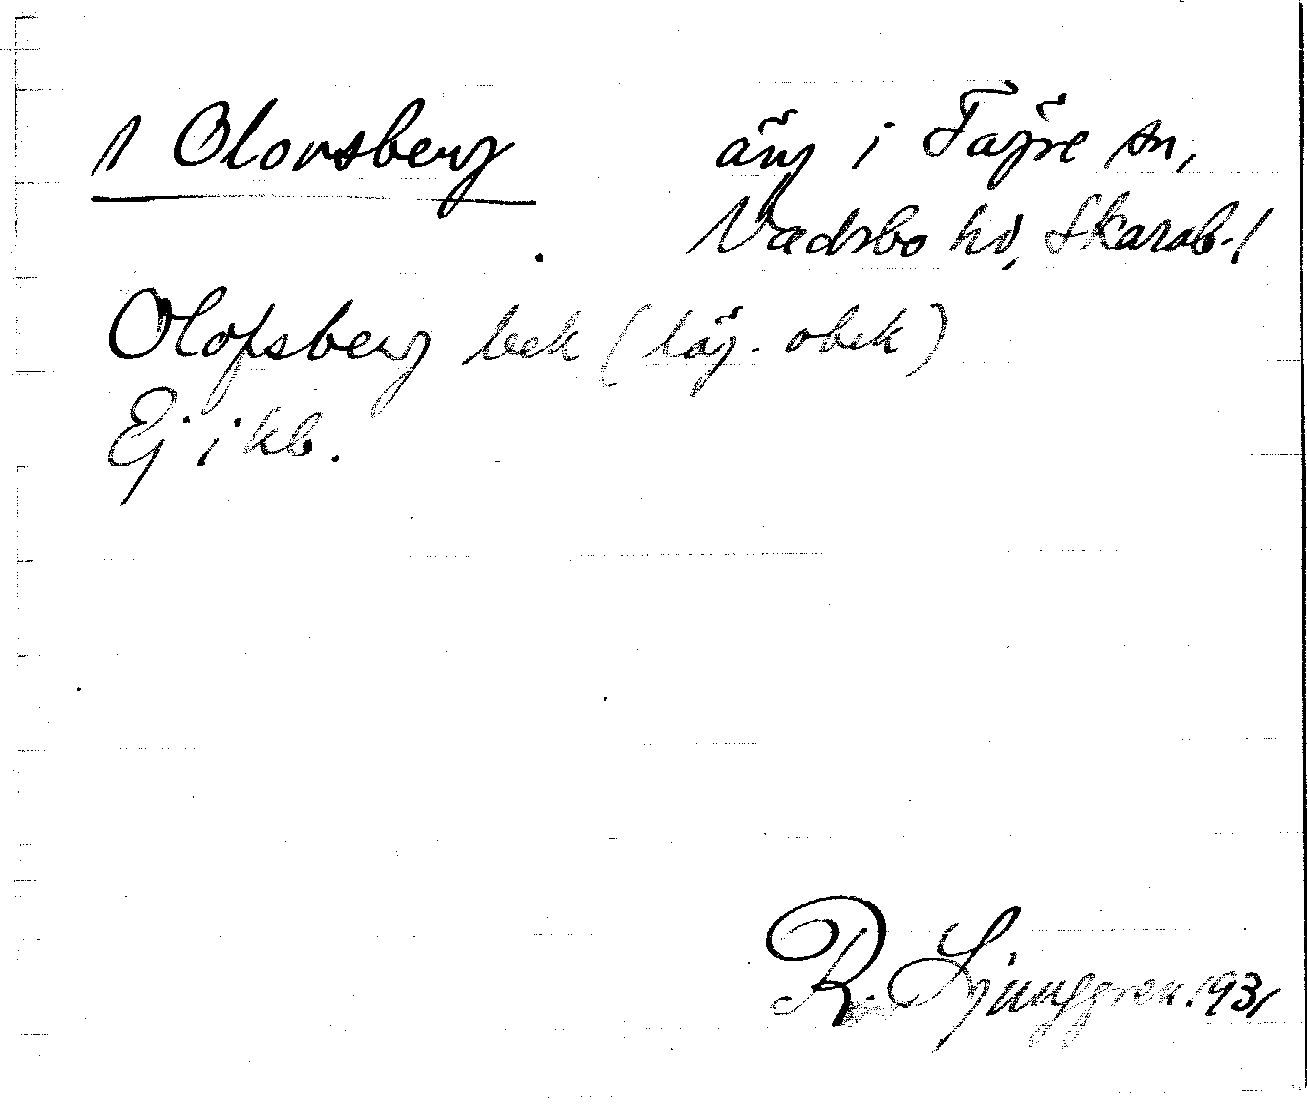 Olovsberg äng i Fägre sn,
Vadsbo hd, Skarab. l
Olofsberg bek (läg. obek)
Ej i kb.
R. Ljunggren. 1931